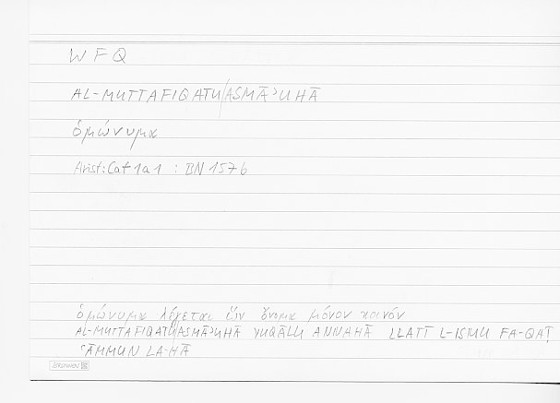 WFQ
AL-MUTTAFIQATU/ASMĀʾUHĀ
ὁμώνυμα
Arist: Cat 1a1 : BN 157b
ὁμώνυμα λέγεται ὧν ὄνομα μόνον κοινόν
AL-MUTTAFIQATU/ASMĀʾUHĀ YUQĀLU ANNAHĀ LLATĪ L-ISMU FA-QAṬ
ʿĀMMUN LA-HĀ
BRUNNEN